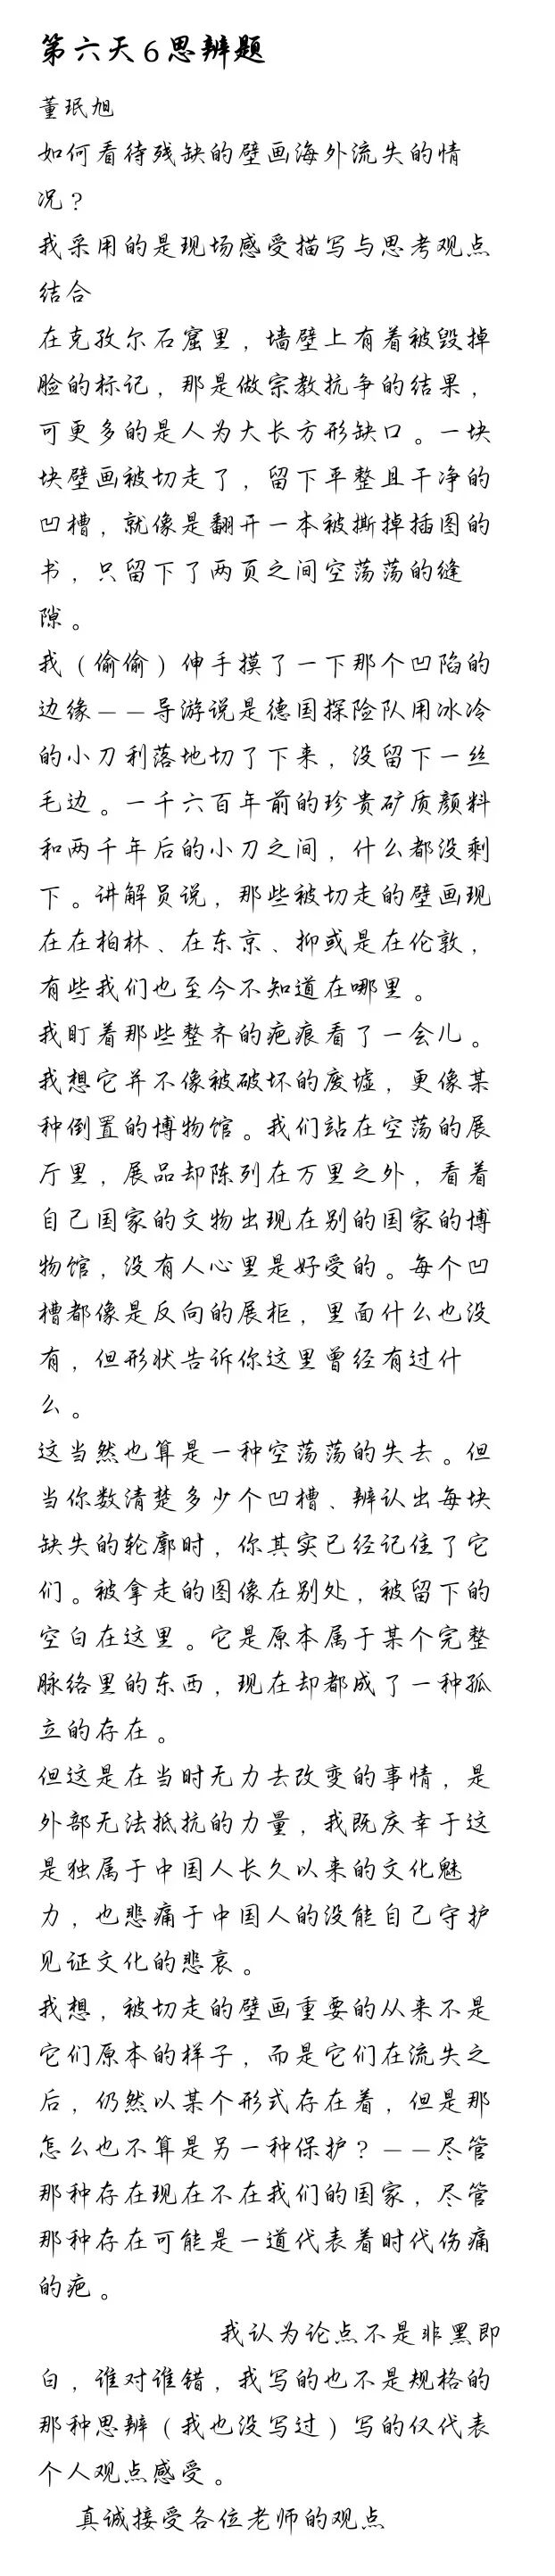 第六天6思辨题
董珉旭
如何看待残缺的壁画海外流失的情
况？
我采用的是现场感受描写与思考观点
结合
在克孜尔石窟里，墙壁上有着被毁掉
脸的标记，那是做宗教抗争的结果，
可更多的是人为大长方形缺口。一块
块壁画被切走了，留下平整且干净的
凹槽，就像是翻开一本被撕掉插图的
书，只留下了两页之间空荡荡的缝
隙。
我（偷偷）伸手摸了一下那个凹陷的
边缘——导游说是德国探险队用冰冷
的小刀利落地切了下来，没留下一丝
毛边。一千六百年前的珍贵矿质颜料
和两千年后的小刀之间，什么都没剩
下。讲解员说，那些被切走的壁画现
在在柏林、在东京、抑或是在伦敦，
有些我们也至今不知道在哪里。
我盯着那些整齐的疤痕看了一会儿。
我想它并不像被破坏的废墟，更像某
种倒置的博物馆。我们站在空荡的展
厅里，展品却陈列在万里之外，看着
自己国家的文物出现在别的国家的博
物馆，没有人心里是好受的。每个凹
槽都像是反向的展柜，里面什么也没
有，但形状告诉你这里曾经有过什
么。
这当然也算是一种空荡荡的失去。但
当你数清楚多少个凹槽、辨认出每块
缺失的轮廓时，你其实已经记住了它
们。被拿走的图像在别处，被留下的
空白在这里。它是原本属于某个完整
脉络里的东西，现在却都成了一种孤
立的存在。
但这是在当时无力去改变的事情，是
外部无法抵抗的力量，我既庆幸于这
是独属于中国人长久以来的文化魅
力，也悲痛于中国人的没能自己守护
见证文化的悲哀。
我想，被切走的壁画重要的从来不是
它们原本的样子，而是它们在流失之
后，仍然以某个形式存在着，但是那
怎么也不算是另一种保护？——尽管
那种存在现在不在我们的国家，尽管
那种存在可能是一道代表着时代伤痛
的疤。
我认为论点不是非黑即
白，谁对谁错，我写的也不是规格的
那种思辨（我也没写过）写的仅代表
个人观点感受。
真诚接受各位老师的观点